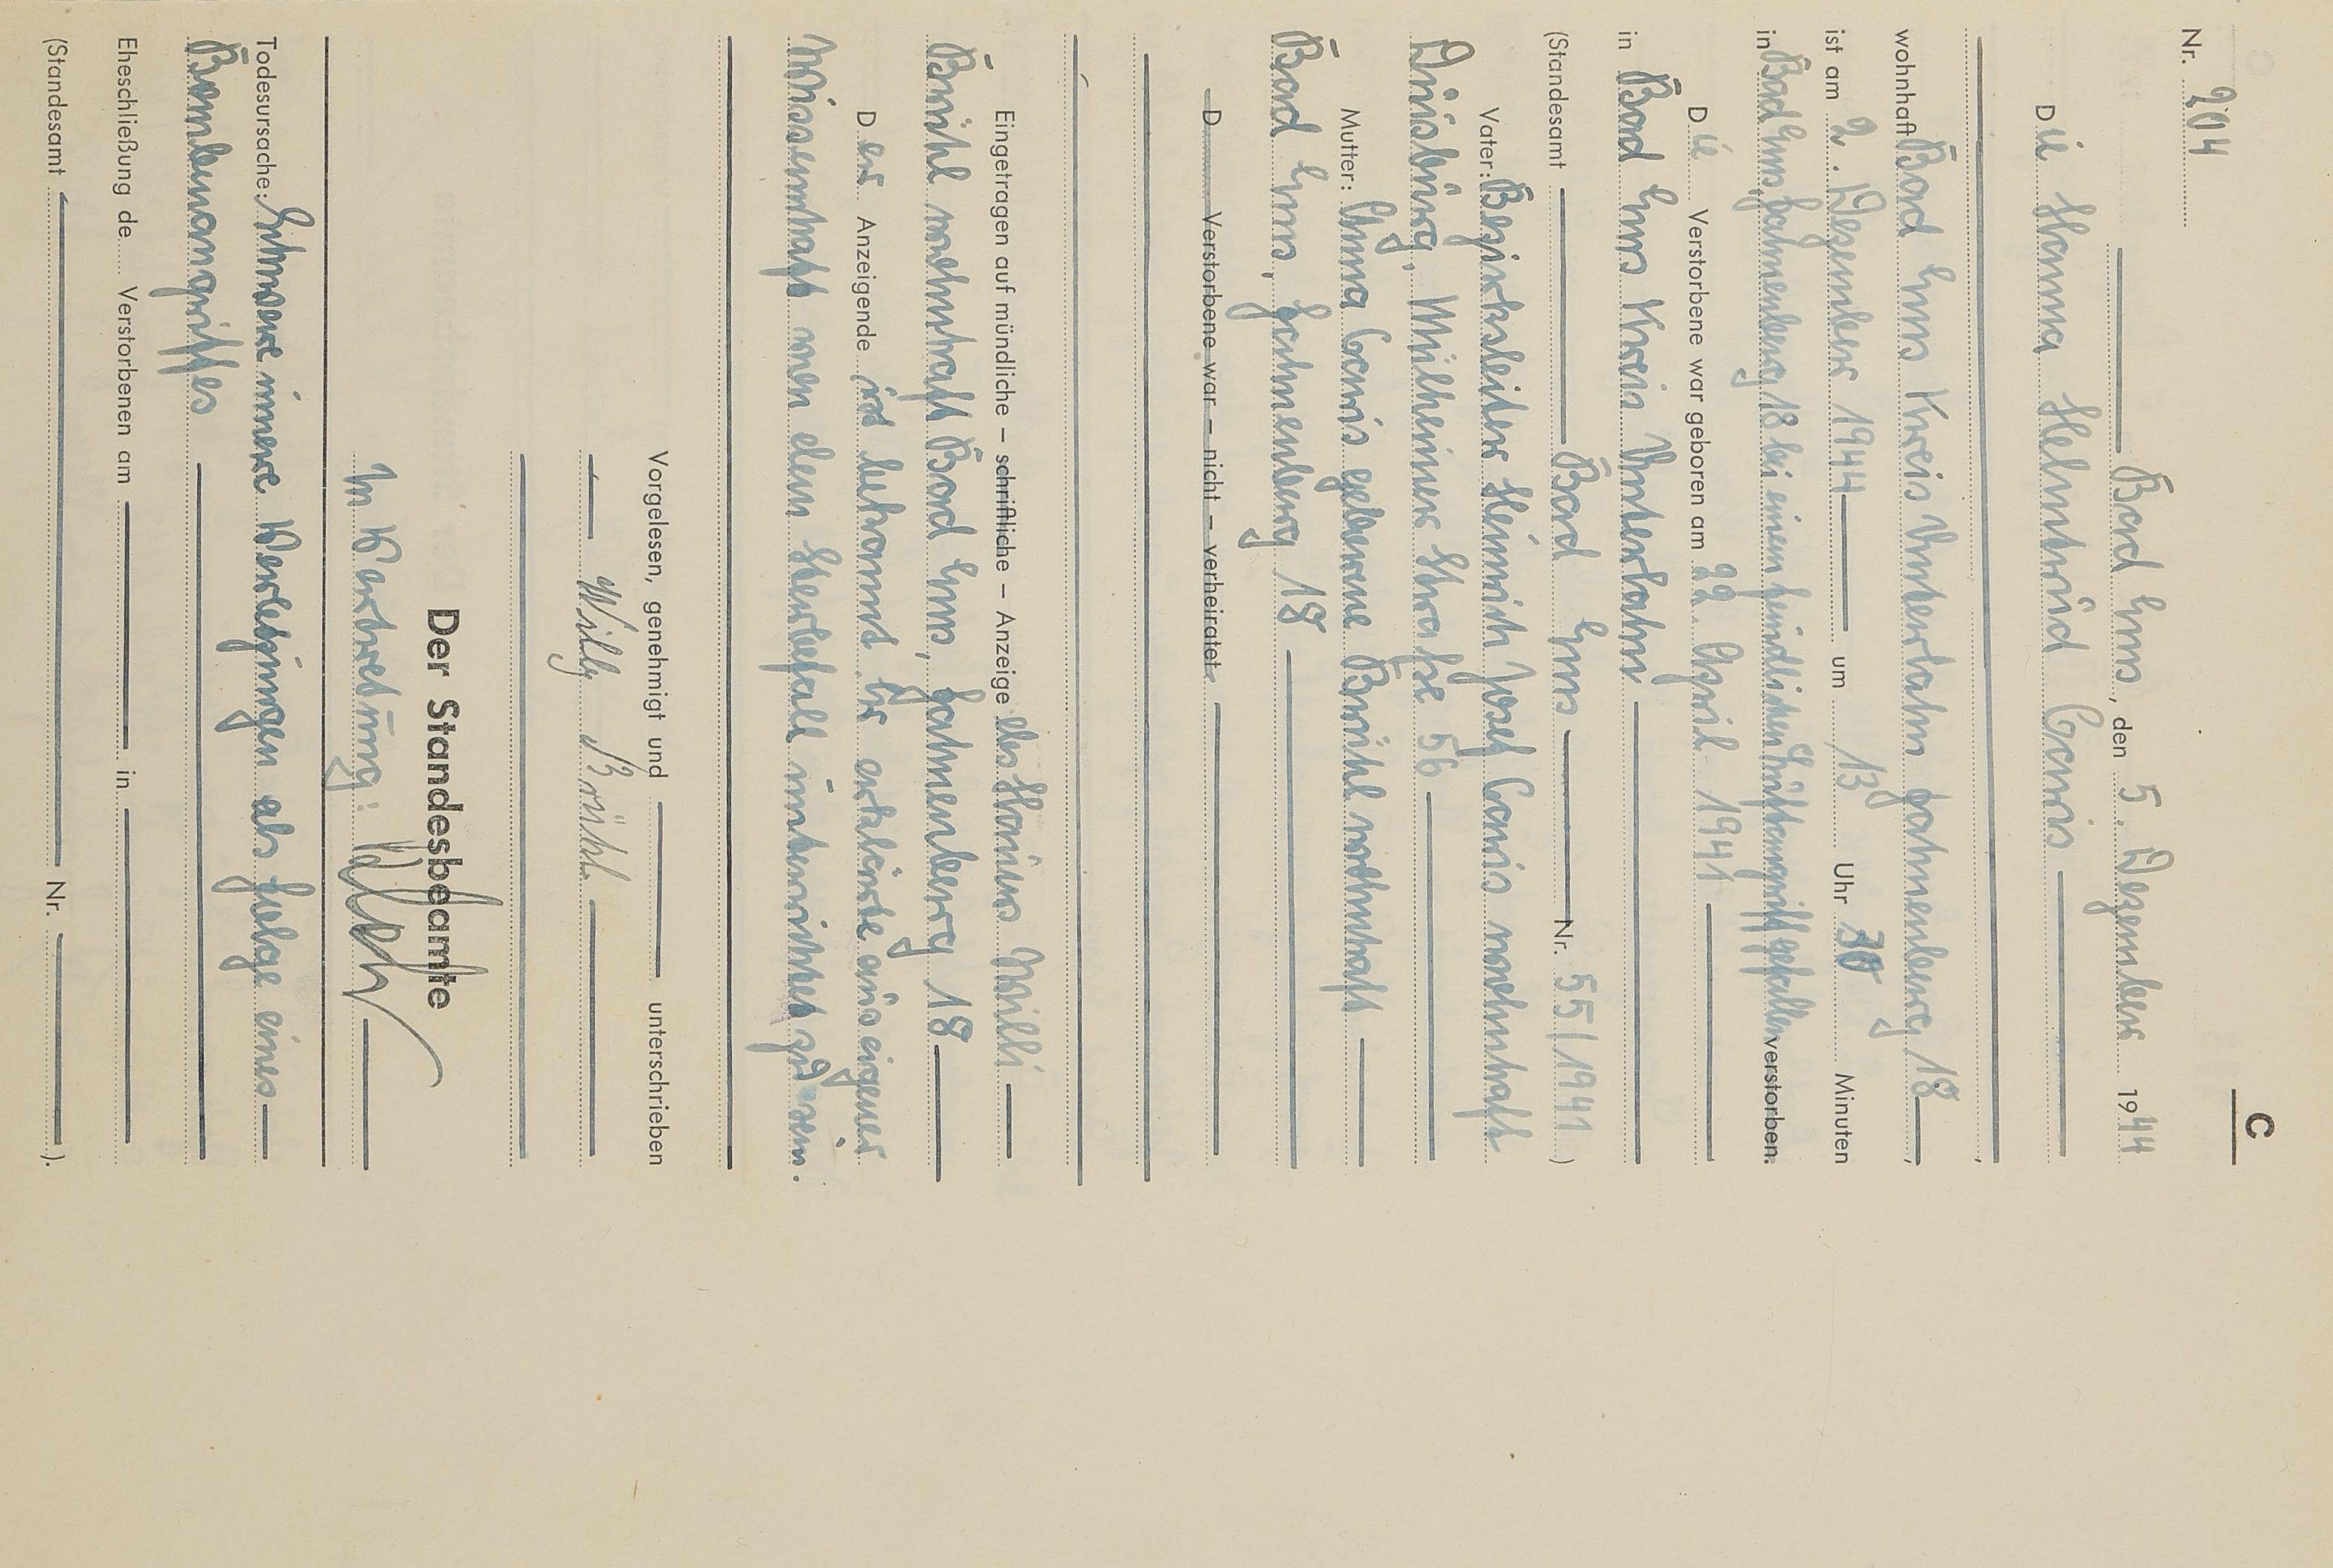 C
Nr. 204
Bad Ems, den 5. Dezember 1944
Die Hanna Helmtrud Canis
wohnhaft Bad Ems Kreis Unterlahn Fahnenberg 18,
ist am 2. Dezember 1944 um 13 Uhr 30 Minuten
in Bad Ems, Fahnenberg 18 bei einem feindlichen Luftangriff gefallen verstorben.
Die Verstorbene war geboren am 22. April 1941
in Bad Ems Kreis Unterlahn
(Standesamt Bad Ems Nr. 55/1941)
Vater: Bezirksleiter Heinrich Josef Canis wohnhaft
Duisburg, Mülheimer Straße 56
Mutter: Anna Canis geborene Brühl wohnhaft
Bad Ems, Fahnenberg 18
D Verstorbene war – nicht – verheiratet
Eingetragen auf mündliche – schriftliche – Anzeige des Willi
Brühl wohnhaft Bad Ems, Fahnenberg 18
Der Anzeigende ist bekannt. Er erklärte aus eigener
Wissenschaft von dem Sterbefall unterrichtet zu sein.
Vorgelesen, genehmigt und unterschrieben
Willy Brühl
Der Standesbeamte
In Vertretung:
Todesursache: Schwere innere Verletzungen als Folge eines
Bombenangriffes
Eheschließung de Verstorbenen am in
(Standesamt Nr. ).